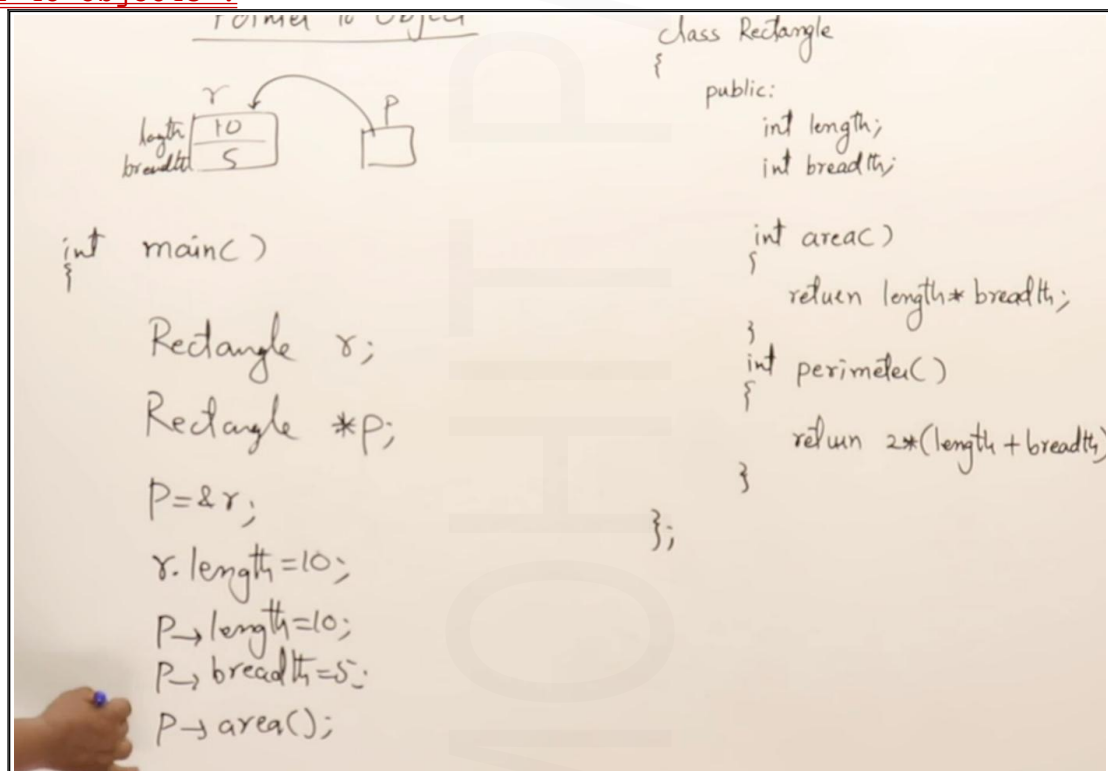 to objects :
Pointer to Object
r
p
length 10
breadth 5
int main()
{
Rectangle r;
Rectangle *p;
p=&r;
r.length=10;
p→length=10;
p→breadth=5;
p→area();
class Rectangle
{
public:
int length;
int breadth;
int area()
{
return length*breadth;
}
int perimeter()
{
return 2*(length+breadth)
}
};
MOHIT P